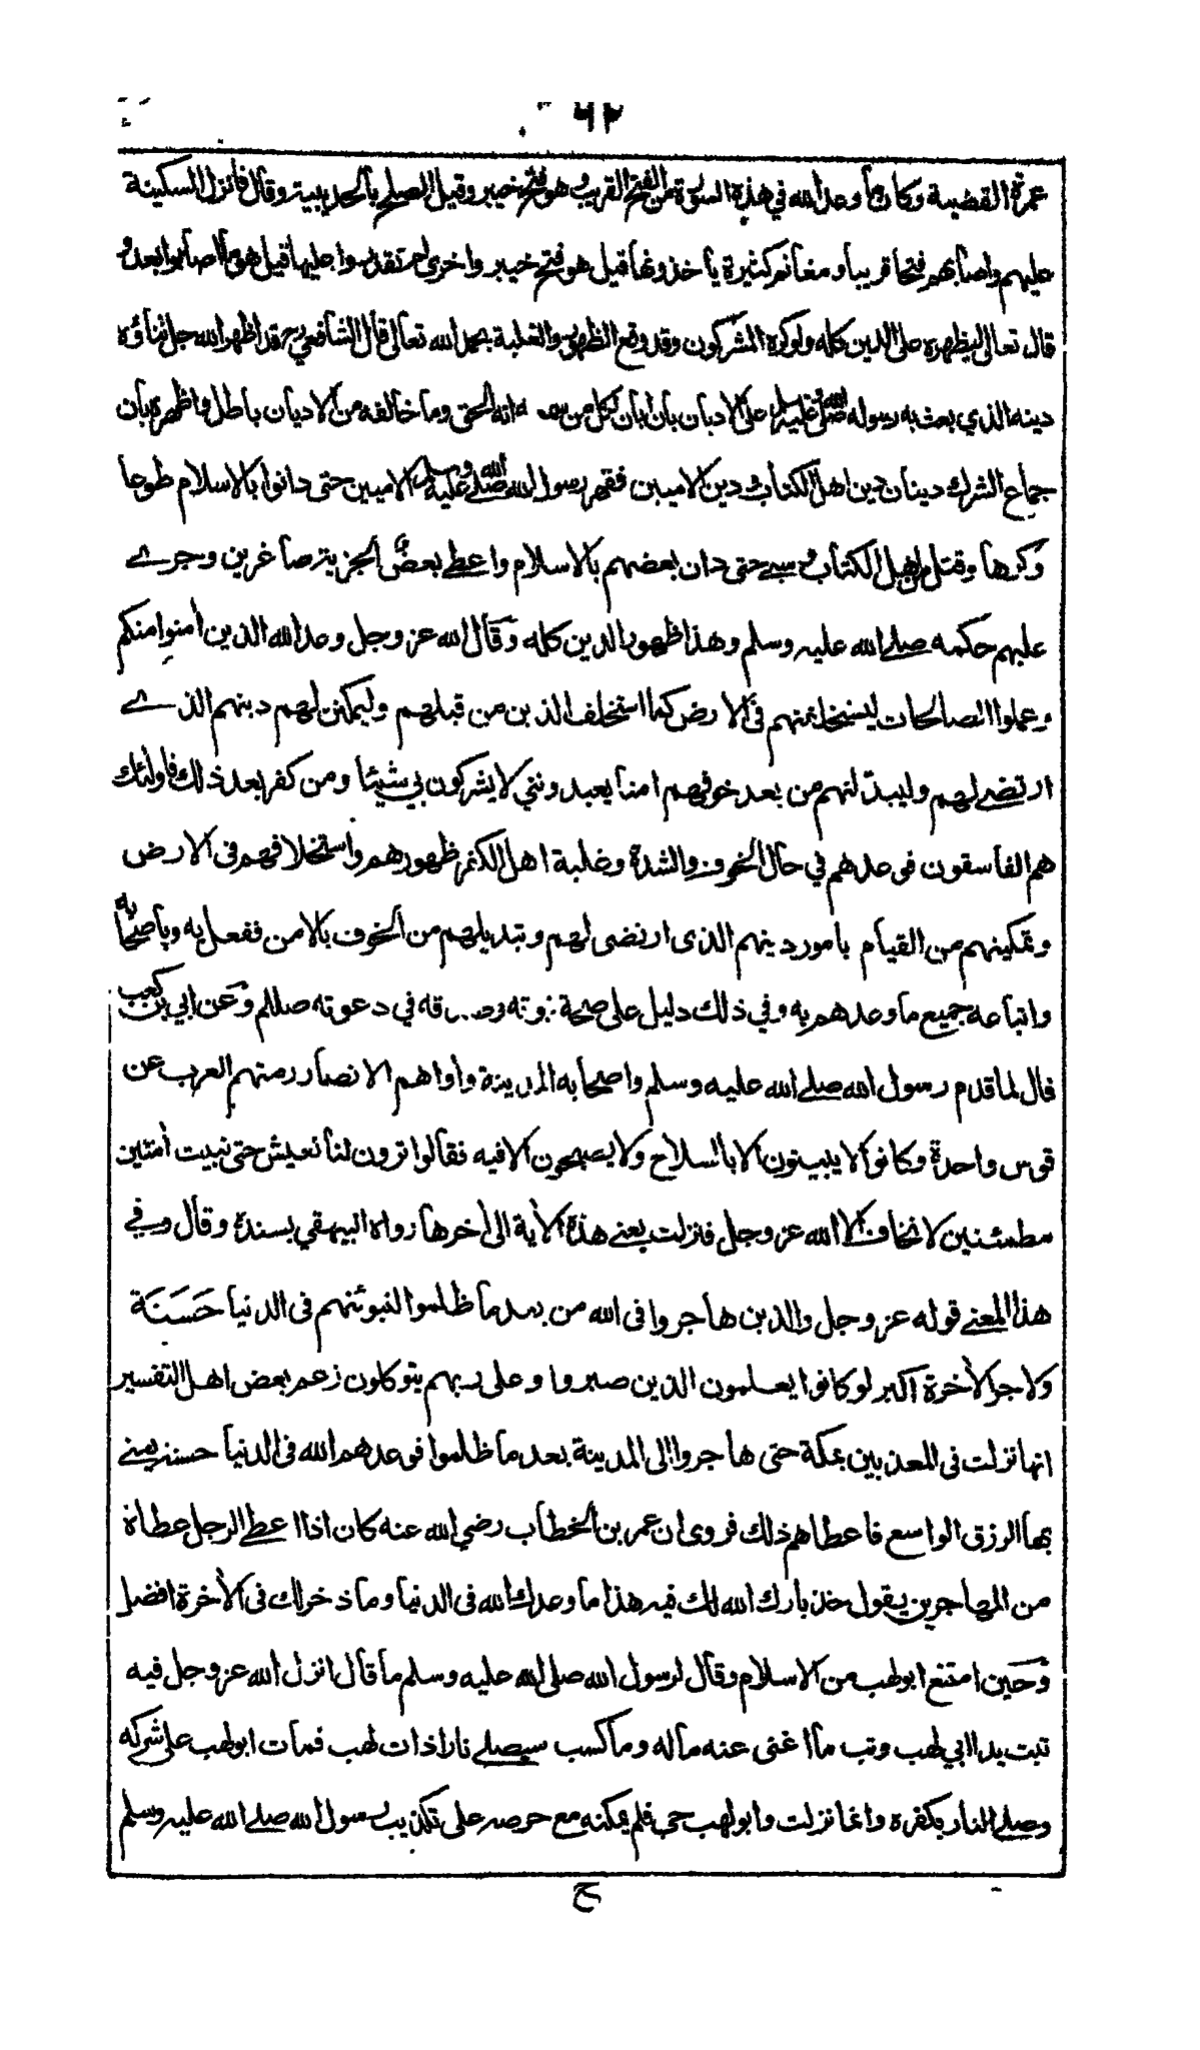 ٦٢
عمرة القضية وكان ما وعد الله في هذه السورة من الفتح القريب وهو فتح خيبر وقيل الصلح بالحديبية وقال فانزل السكينة
عليهم واصابهم فتحا قريبا ومغانم كثيرة يأخذونها قيل هو فتح خيبر واخرى لم تقدروا عليها قيل هو ما اصابوا بعد و
قال تعالى ليظهره على الدين كله ولو كره المشركون وقد وقع الظهور والغلبة بحمد الله تعالى قال الشافعي رح قد اظهر الله جل ثناؤه
دينه الذي بعث به رسوله صلى الله عليه وسلم على الاديان بان ابان لكل من سمعه انه الحق وما خالفه من الاديان باطل واظهره بان
جماع الشرك دينان دين اهل الكتاب ودين الاميين فقهر رسول الله صلى الله عليه وسلم الاميين حتى دانوا بالاسلام طوعا
وكرها وقتل من اهل الكتاب وسبے حتى دان بعضهم بالاسلام واعطے بعض الجزية صاغرين وجرے
عليهم حكمه صلے الله عليه وسلم وهذا ظهور الدين كله وقال الله عز وجل وعد الله الذين أمنوا منكم
وعملوا الصالحات ليستخلفنهم في الارض كما استخلف الذين من قبلهم وليمكنن لهم دينهم الذے
ارتضے لهم وليبدلنهم من بعد خوفهم امنا يعبدونني لا يشركون بي شيئا ومن كفر بعد ذلك فاولئك
هم الفاسقون فوعدهم في حال الخوف والشدة وغلبة اهل الكفر ظهورهم واستخلافهم في الارض
وتمكينهم من القيام بامور دينهم الذى ارتضى لهم وتبديلهم من الخوف بالامن ففعل به وباصحابه
واتباعه جميع ما وعدهم به وفي ذلك دليل على صحة نبوته وصدقه في دعوته صللم وعن ابي بن كعب
قال لما قدم رسول الله صلے الله عليه وسلم واصحابه المدينة وأواهم الانصار رمتهم العرب عن
قوس واحدة وكانوا لا يبيتون الا بالسلاح ولا يصبحون الا فيه فقالوا ترون لنا نعيش حتى نبيت أمنين
مطمئنين لا نخاف الا الله عز وجل فنزلت يعنے هذه الأية الى أخرها رواه البيهقي بسنده وقال وفي
هذا المعنے قوله عز وجل والذين هاجروا فى الله من بعد ما ظلموا لنبوئنهم فى الدنيا حَسَنَة
ولاجر الأخرة اكبر لو كانوا يعلمون الذين صبروا وعلى ربهم يتوكلون زعم بعض اهل التفسير
انها نزلت في المعذبين بمكة حتى هاجروا الى المدينة بعد ما ظلموا فوعدهم الله فى الدنيا حسنة يعنے
بها الرزق الواسع فاعطاهم ذلك فروى ان عمر بن الخطاب رضي الله عنه كان اذا اعطے الرجل عطاة
من المهاجرين يقول خذ بارك الله لك فيه هذا ما وعدك الله فى الدنيا وما ذخر لك فى الأخرة افضل
وحَين امتنع ابو لهب من الاسلام وقال لرسول الله صلى الله عليه وسلم ما قال انزل الله عز وجل فيه
تبت يدا ابي لهب وتب ما اغنى عنه ماله وما كسب سيصلے نارا ذات لهب فمات ابو لهب على شركه
وصلے النار بكفره وانما نزلت وابو لهب حي فلم يمكنه مع حرصه على تكذيب رسول الله صلے الله عليه وسلم
ح